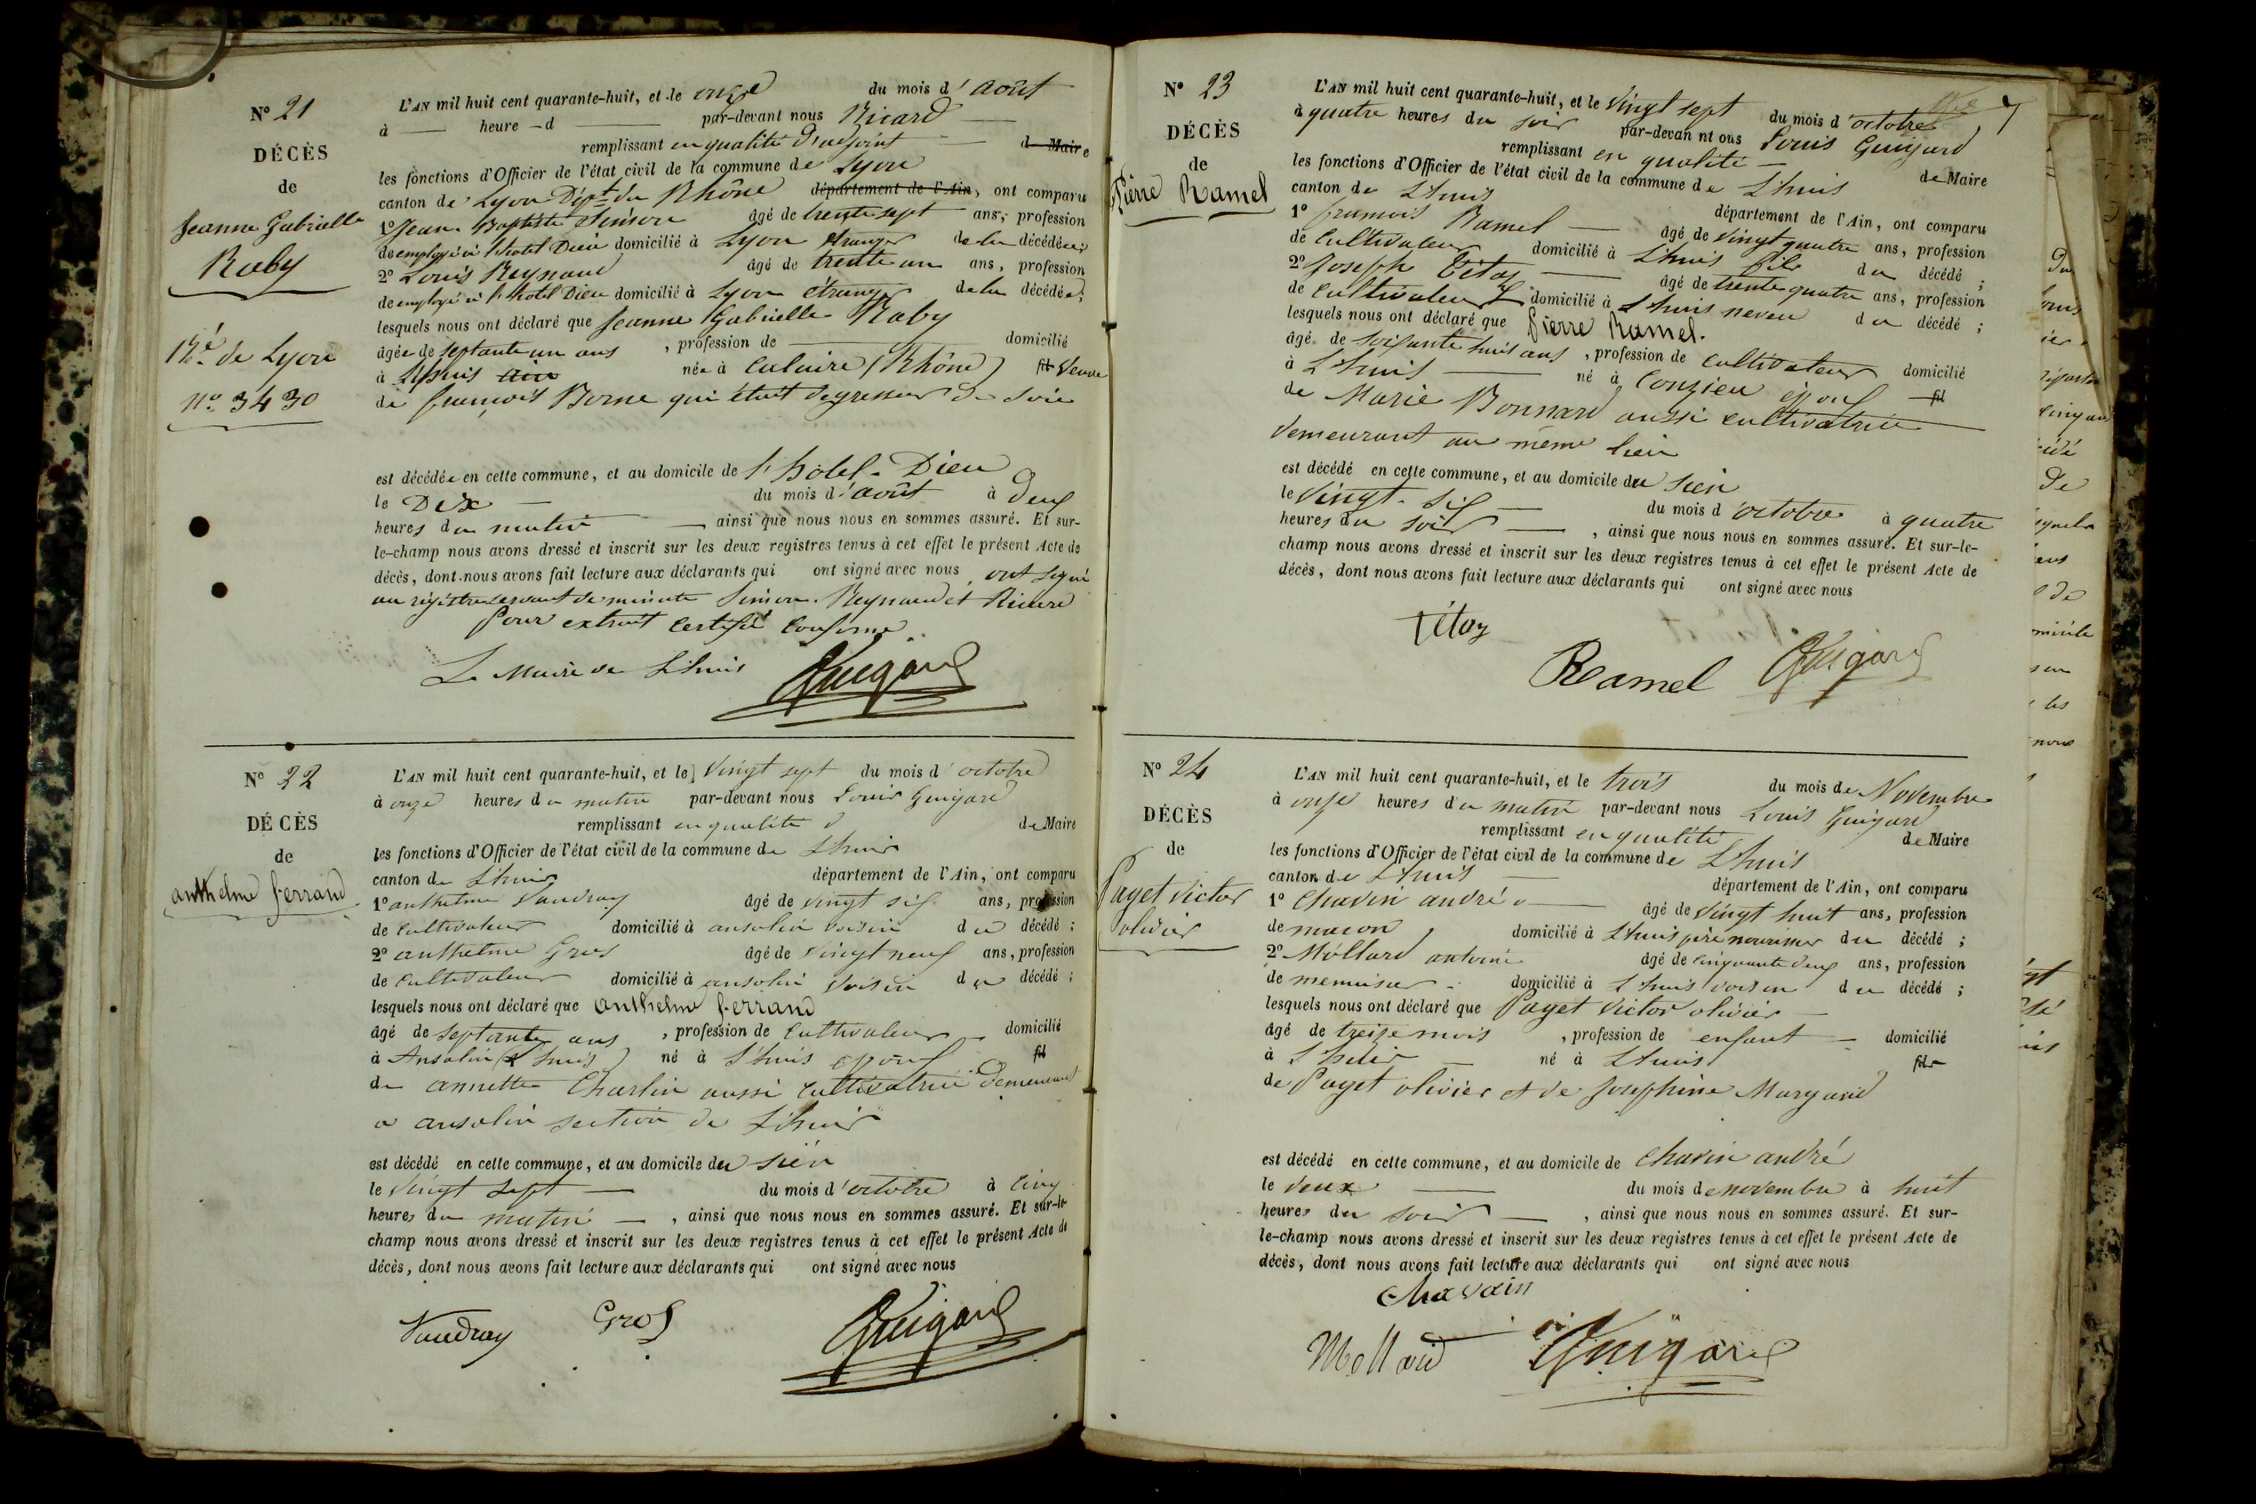 N° 21
DÉCÈS
de
Jeanne Gabrielle
Raby
Rté de Lyon
n°. 3430
L'AN mil huit cent quarante-huit, et le onze du mois d'août
à — heure - d — par-devant nous Ricard —
remplissant en qualité d'adjoint — de Maire
les fonctions d'Officier de l'état civil de la commune de Lyon
canton de Lyon Dépt du Rhône département de l'Ain, ont comparu
1° Jean Baptiste Simon âgé de trente sept ans, profession
de employé à l'hotel Dieu domicilié à Lyon étranger de la décédée;
2° Louis Reynaud âgé de trente un ans, profession
de employé à l'hotel Dieu domicilié à Lyon étranger de la décédée;
lesquels nous ont déclaré que Jeanne Gabrielle Raby
âgée de septante un ans, profession de — domicilié
à Lhuis ain née à Caluire (Rhône) fil Veuve
de françois Borne qui était degresseur de soie
est décédée en cette commune, et au domicile de l'hôtel-Dieu
le Dix — du mois d'août à deux
heures du matin — ainsi que nous nous en sommes assuré. Et sur-
le-champ nous avons dressé et inscrit sur les deux registres tenus à cet effet le présent Acte de
décès, dont nous avons fait lecture aux déclarants qui ont signé avec nous ont signé
au régistre servant de minute Simon. Reynaud et Ricard
Pour extrait certifié conforme
Le Maire de Lhuis Guigard
N° 22
DÉCÈS
de
anthelme ferrand
L'AN mil huit cent quarante-huit, et le vingt sept du mois d'octobre
à onze heures du matin par-devant nous Louis Guigard
remplissant en qualité d de Maire
les fonctions d'Officier de l'état civil de la commune de Lhuis
canton de Lhuis département de l'Ain, ont comparu
1° anthelme Vaudray âgé de vingt six ans, profession
de cultivateur domicilié à ansolin voisin du décédé;
2° anthelme Gros âgé de vingt neuf ans, profession
de cultivateur domicilié à ansolin voisin du décédé;
lesquels nous ont déclaré que anthelme ferrand
âgé de septante ans, profession de cultivateur domicilié
à Ansolin (Lhuis) né à Lhuis epoux fil
de annette Charlin aussi cultivatrice demeurant
a ansolin section de Lhuis
est décédé en cette commune, et au domicile du sien
le vingt sept — du mois d'octobre à cinq
heures du matin —, ainsi que nous nous en sommes assuré. Et sur-le-
champ nous avons dressé et inscrit sur les deux registres tenus à cet effet le présent Acte de
décès, dont nous avons fait lecture aux déclarants qui ont signé avec nous
Vaudray Gros Guigard
N° 23
DÉCÈS
de
Pierre Ramel
L'AN mil huit cent quarante-huit, et le vingt sept du mois d'octobre
à quatre heures du soir par-devan nt ous Louis Guigard
remplissant en qualité — de Maire
les fonctions d'Officier de l'état civil de la commune de Lhuis
canton de Lhuis département de l'Ain, ont comparu
1° françois Ramel — âgé de vingt quatre ans, profession
de cultivateur domicilié à Lhuis fils du décédé;
2° Joseph Titoz — âgé de trente quatre ans, profession
de cultivateur domicilié à Lhuis neveu du décédé;
lesquels nous ont déclaré que Pierre Ramel.
âgé de soixante huit ans, profession de cultivateur domicilié
à Lhuis — né à Conzieu époux fil
de Marie Bonnard aussi cultivatrice —
demeurant au même lieu
est décédé en cette commune, et au domicile du sien
le vingt-six — du mois d'octobre à quatre
heures du soir —, ainsi que nous nous en sommes assuré. Et sur-le-
champ nous avons dressé et inscrit sur les deux registres tenus à cet effet le présent Acte de
décès, dont nous avons fait lecture aux déclarants qui ont signé avec nous
Titoz
Ramel Guigard
N° 24
DÉCÈS
de
Payet Victor
olivier
L'AN mil huit cent quarante-huit, et le trois du mois de Novembre
à onze heures du matin par-devant nous Louis Guigard
remplissant en qualité de Maire
les fonctions d'Officier de l'état civil de la commune de Lhuis
canton de Lhuis — département de l'Ain, ont comparu
1° Chavin andré — âgé de vingt huit ans, profession
de maçon, domicilié à Lhuis père nourissier du décédé;
2° Mollard antoine âgé de cinquante deux ans, profession
de menuisier domicilié à Lhuis voisin du décédé;
lesquels nous ont déclaré que Payet Victor olivier —
âgé de treize mois, profession de enfant — domicilié
à Lhuis — né à Lhuis fils
de Payet olivier et de Josephine Margand
est décédé en cette commune, et au domicile de Chavin andré
le deux — du mois de novembre à huit
heures du soir —, ainsi que nous nous en sommes assuré. Et sur-
le-champ nous avons dressé et inscrit sur les deux registres tenus à cet effet le présent Acte de
décès, dont nous avons fait lecture aux déclarants qui ont signé avec nous
Chavain
Mollard Guigard